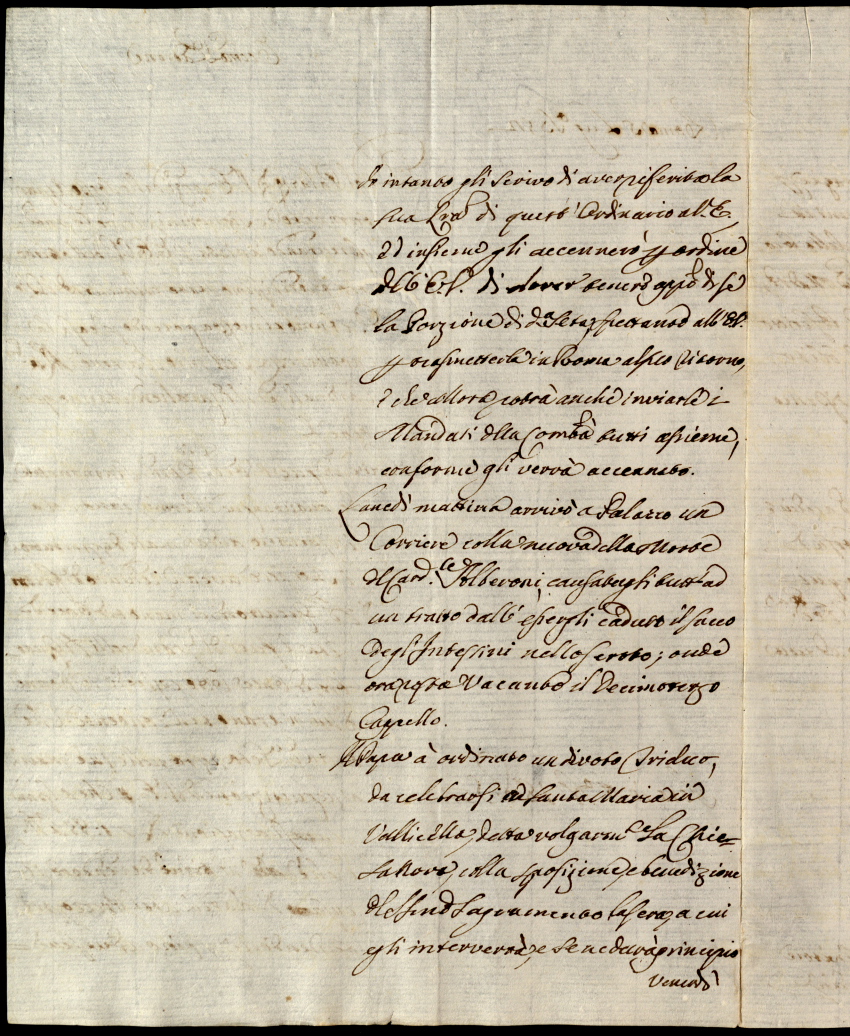 Io intanto gli scrivo di aver riferita la
sua Lra di questo Ordinario all'E.
Ed insieme gli accennerò p ordine
dell'E.S. di dover tenere app.o di se
la Porzione di d.a spettanao all'ES.
p trasmetterla in Roma al suo ritorno,
e che allora potrà anche inviarle i
Mandati della Comb.a tutti assieme,
conforme gli verrà accennato.
Lunedì mattina arrivò a Palazzo un
Corriere colla nuova della Morte
del Card.le Alberoni causatagli tutt'ad
un tratto dall'essergli caduto il sacco
degli Intestini nello scroto; onde
ora resta Vacante il Decimoterzo
Cappello.
Il Papa à ordinato un divoto Triduo,
da celebrarsi ad Santa Maria in
Vallicella, detta volgarm.e La Chie=
sa Nova, colla sposizione, e benedizione
del Smo Sagramento la sera, a cui
egli interverrà, e se ne darà principio
Venerdì